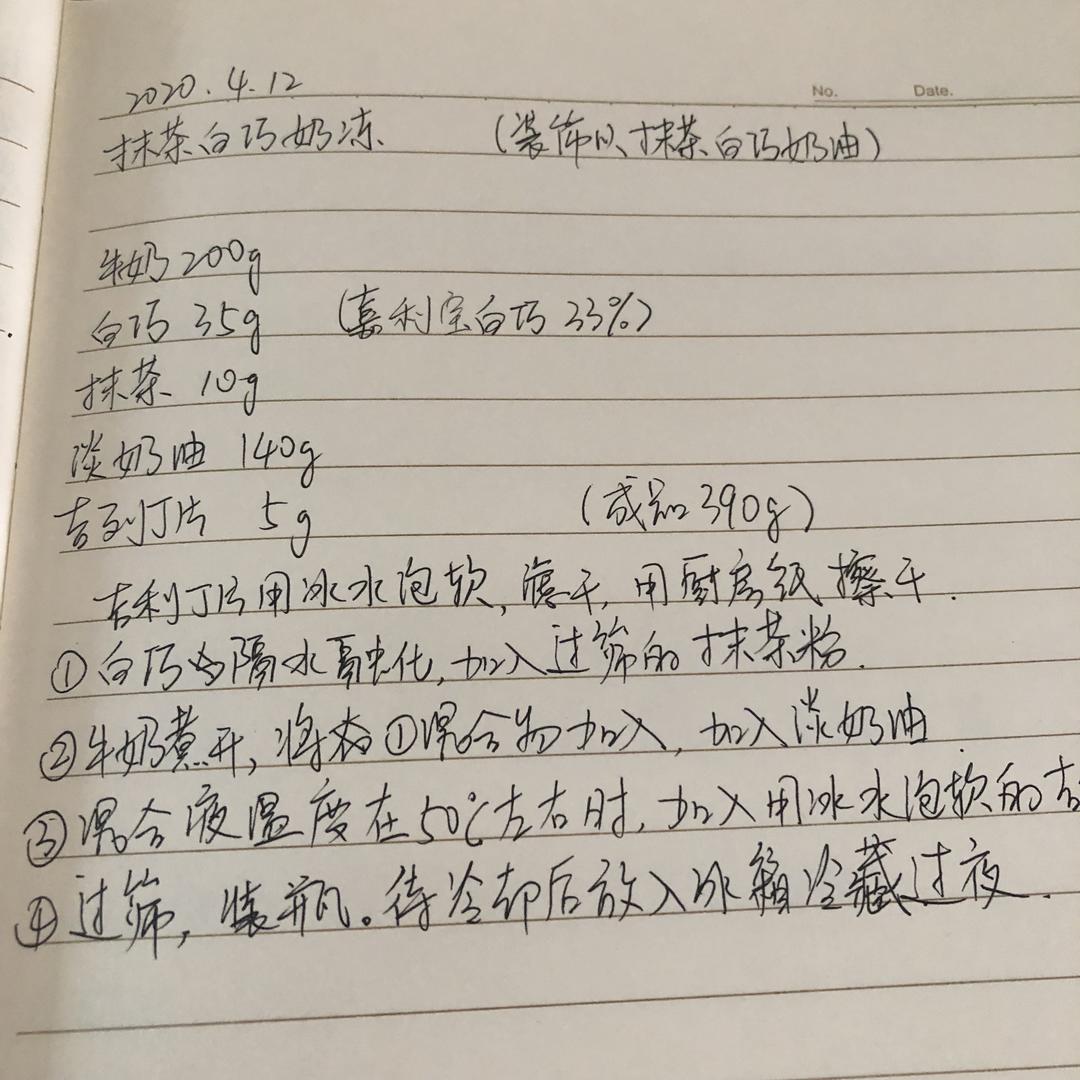 No. Date.
2020.4.12
抹茶白巧奶冻 (装饰以抹茶白巧奶油)
牛奶 200g
白巧 35g (嘉利宝白巧 33%)
抹茶 10g
淡奶油 140g
吉列丁片 5g (成品390g)
吉利丁片用冰水泡软,滤干,用厨房纸擦干.
①白巧隔水融化,加入过筛的抹茶粉.
②牛奶煮开,将①混合物加入,加入淡奶油.
③混合液温度在50℃左右时,加入用冰水泡软的吉
④过筛,装瓶。待冷却后放入冰箱冷藏过夜.